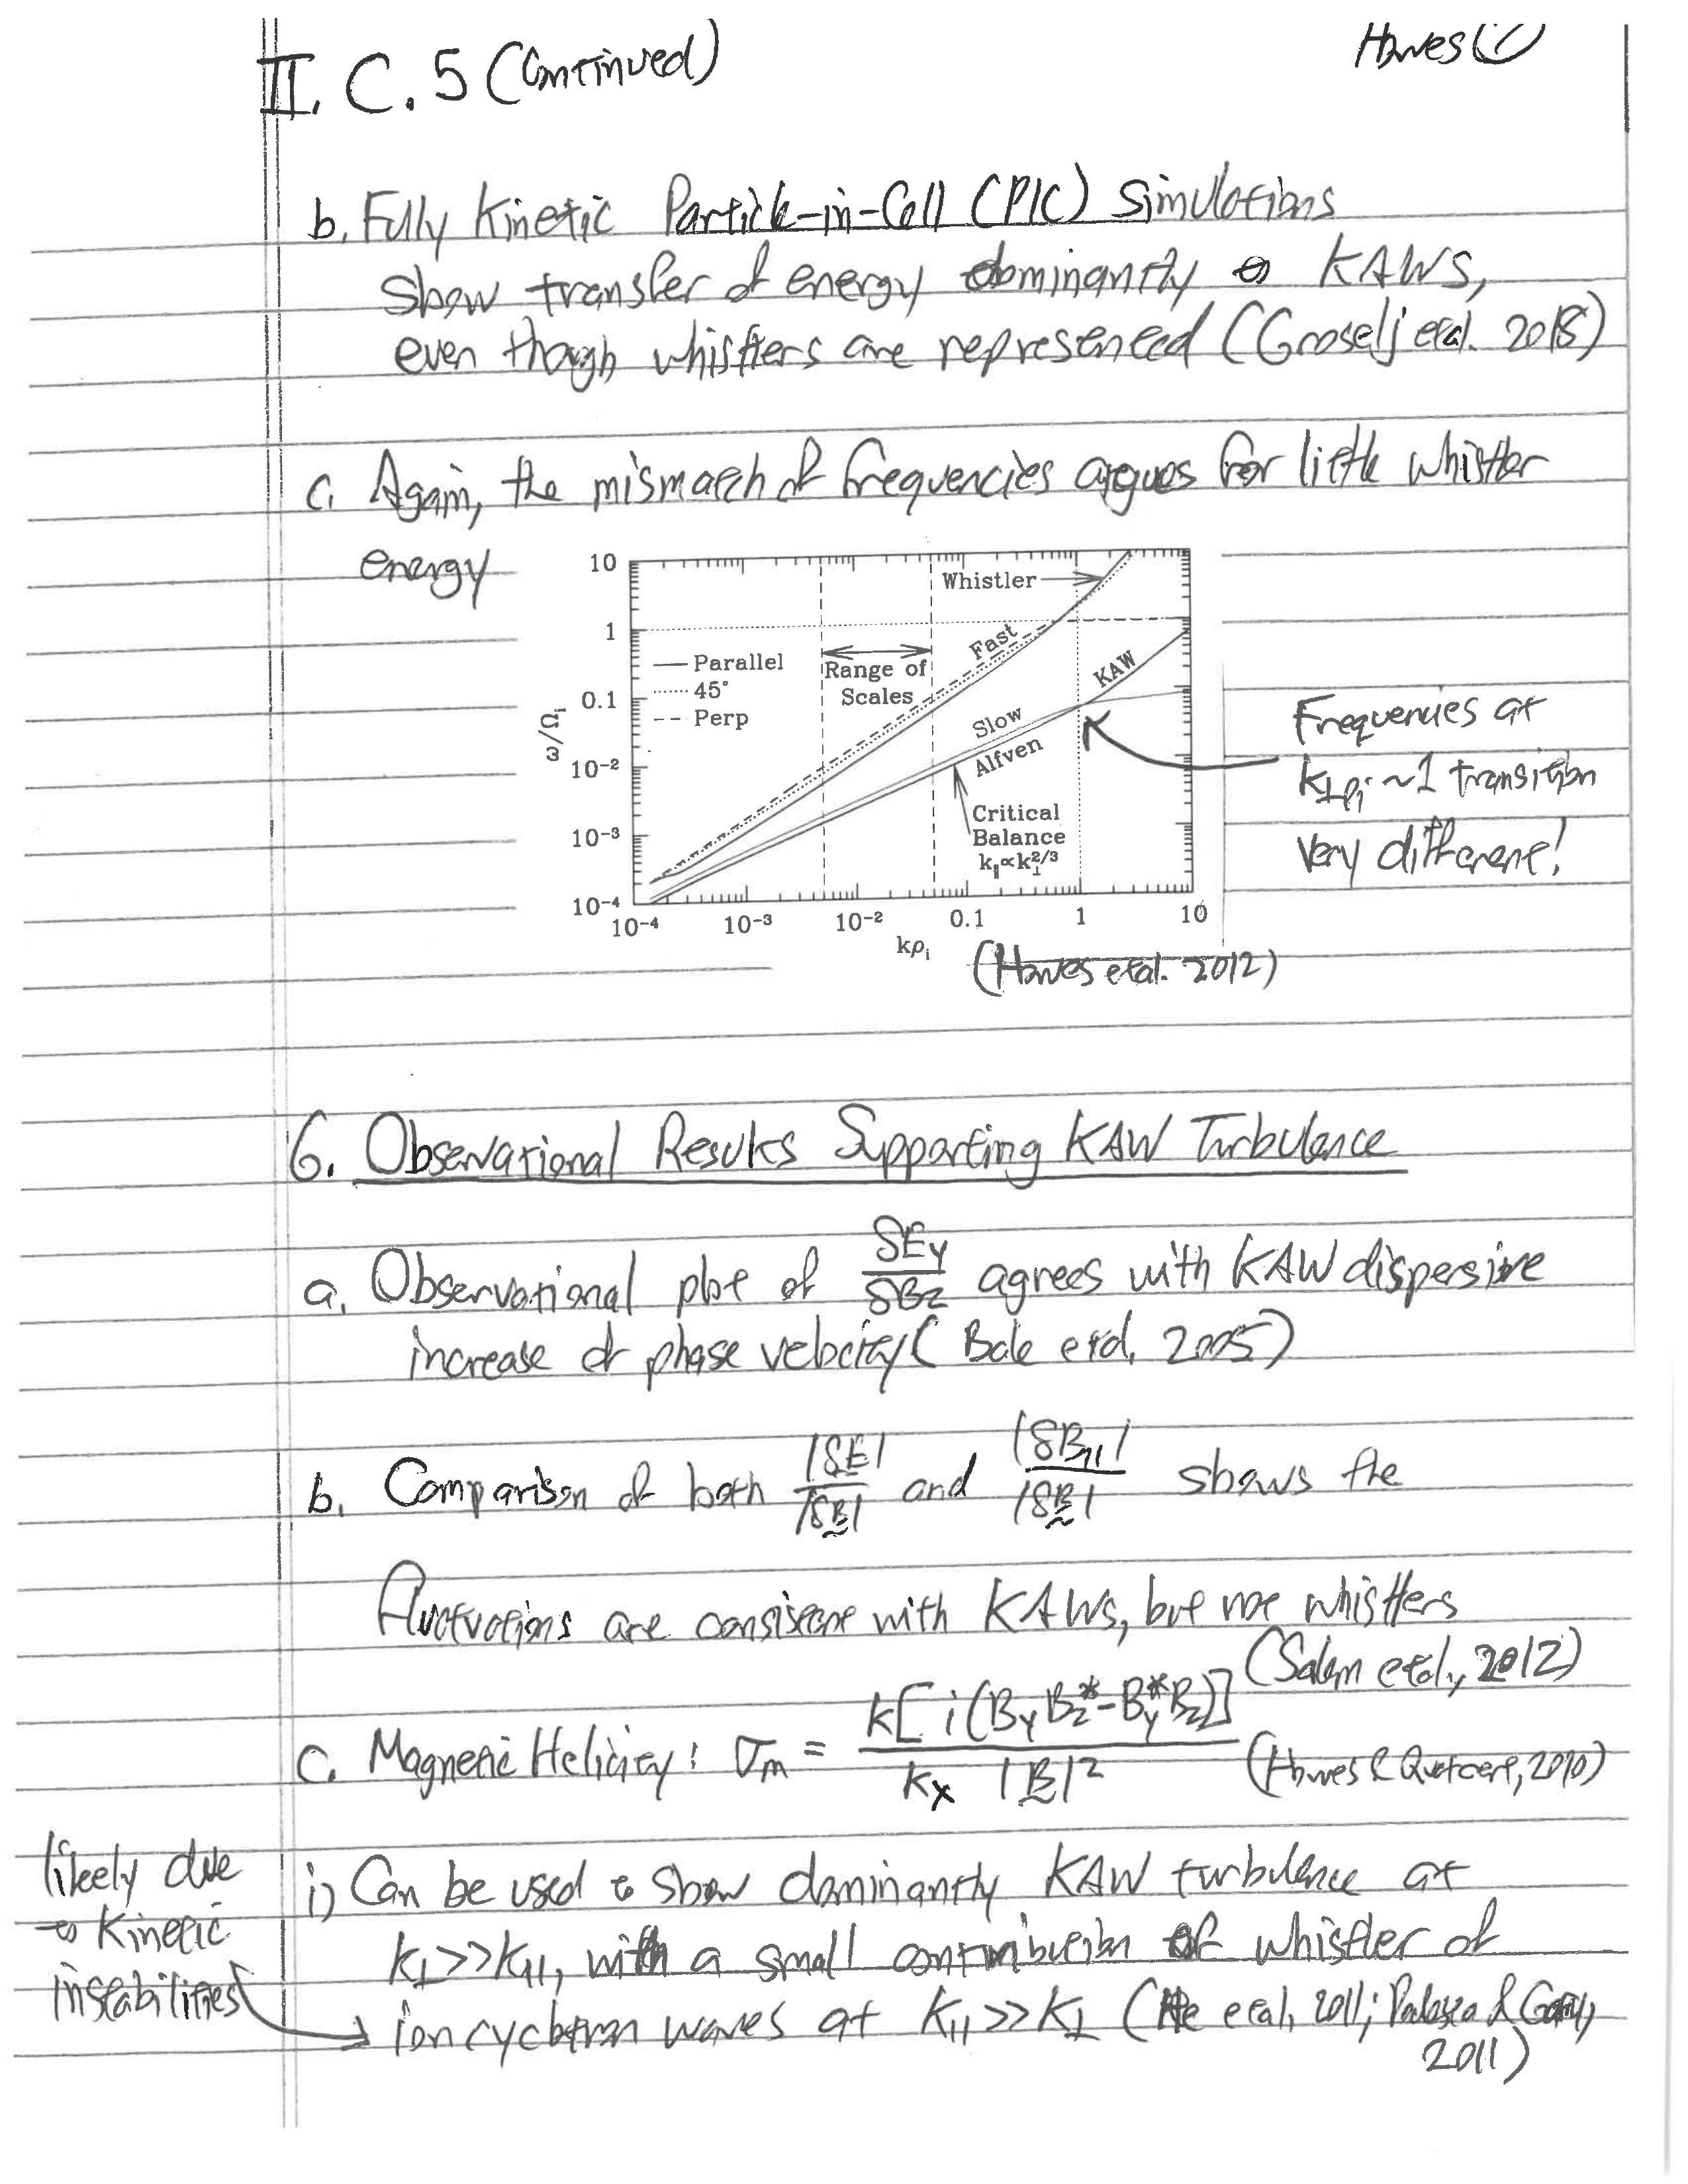 II. C. 5 (Continued)
Howes
b. Fully Kinetic Particle-in-Cell (PIC) Simulations
show transfer of energy dominantly to KAWs,
even though whistlers are represented (Groselj et al. 2018)
c. Again, the mismatch of frequencies argues for little whistler
energy
10
1
0.1
10⁻²
10⁻³
10⁻⁴
ω/Ωᵢ
Whistler
Fast
KAW
Parallel
45°
Perp
Range of
Scales
Slow
Alfven
Critical
Balance
k∥∝k⊥^2/3
10⁻⁴ 10⁻³ 10⁻² 0.1 1 10
kρᵢ
(Howes et al. 2012)
Frequencies at
k⊥ρᵢ ~ 1 transition
very different!
6. Observational Results Supporting KAW Turbulence
a. Observational plot of δEy/δBz agrees with KAW dispersive
increase of phase velocity (Bale et al. 2005)
b. Comparison of both |δE|/|δB| and |δB∥|/|δB| shows the
fluctuations are consistent with KAWs, but not whistlers
(Salem et al., 2012)
c. Magnetic Helicity: σm = k[i(ByBz*-By*Bz)] / kx |B|² (Howes & Quataert, 2010)
i) Can be used to show dominantly KAW turbulence at
k⊥>>k∥, with a small contribution of whistler of
ion cyclotron waves at k∥>>k⊥ (He et al, 2011; Podesta & Gary,
2011)
likely due
to Kinetic
instabilities